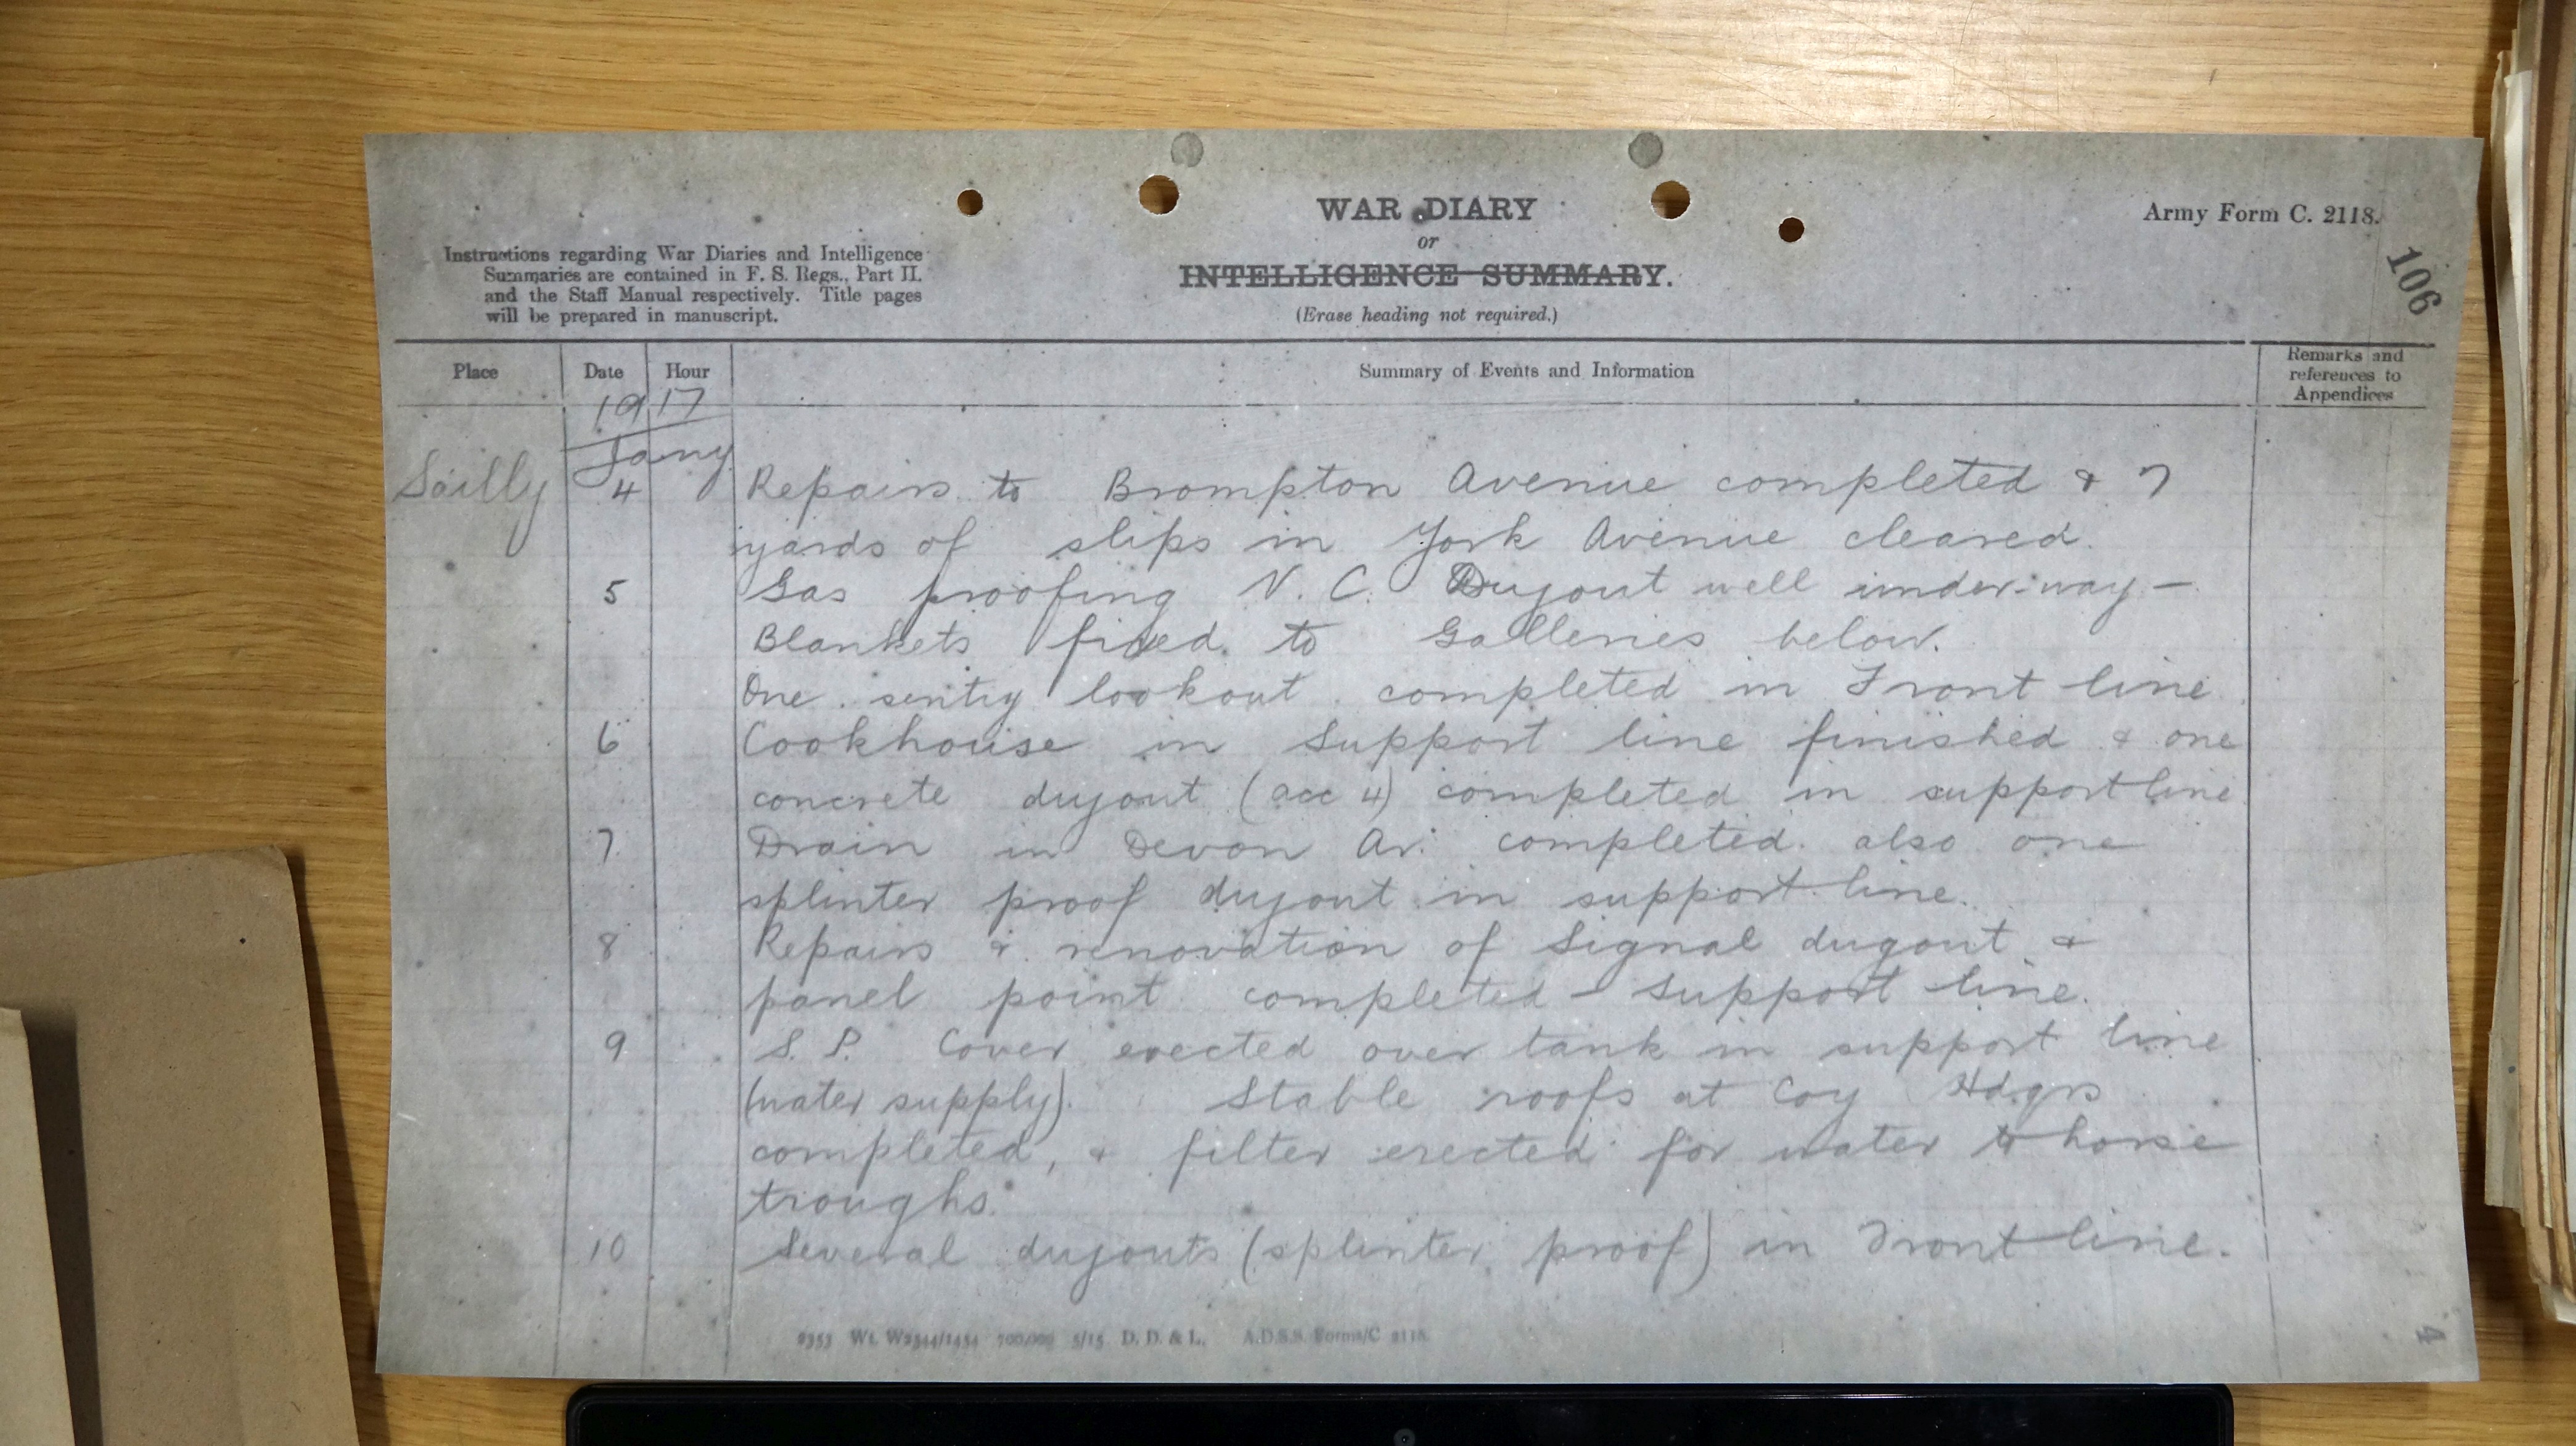 WAR DIARY
or
INTELLIGENCE SUMMARY.
(Erase heading not required.)
Army Form C. 2118.
106
Instructions regarding War Diaries and Intelligence
Summaries are contained in F. S. Regs., Part II.
and the Staff Manual respectively. Title pages
will be prepared in manuscript.
Place Date Hour Summary of Events and Information Remarks and references to Appendices
1917
Jany
Sailly 4 Repairs to Brompton Avenue completed & 7
yards of slips in York Avenue cleared.
5 Gas proofing N. C. Dugout well under-way —
Blankets fixed to Galleries below.
One sentry lookout completed in Front line
6 Cookhouse in Support line finished & one
concrete dugout (acc 4) completed in support line
7 Drain in Devon Av. completed also one
splinter proof dugout in support line.
8 Repairs & renovation of Signal dugout &
panel point completed - Support line.
9 S. P. Cover erected over tank in support line
(water supply). Stable roofs at Coy Hdqrs
completed, & filter erected for water to horse
troughs.
10 Several dugouts (splinter proof) in Front line.
2353 Wt. W2544/1454 700,000 5/15 D. D. & L. A.D.S.S. Forms/C 2118.
4